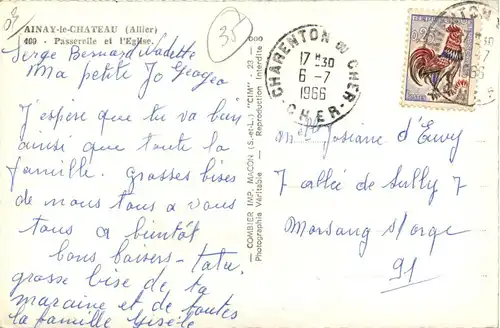 AINAY-le-CHATEAU (Allier)
400 - Passerelle et l'Eglise.
35
Serge Bernard Nadette
Ma petite Jo Georges
J'espère que tu va bien
ainsi que toute la
famille. grosses bises
de nous tous a vous
tous a bientôt
bons baisers - Tatu.
grosse bise de ta
maraine et de toutes
la famille Gisèle
COMBIER IMP. MACON (S.-et-L.) "CIM" - 23 - 000
Photographie Véritable - Reproduction Interdite
CHARENTON DU CHER
17H30
6 - 7
1966
CHER
0,25
Melle Josiane d'Euvy
7 allée de Sully 7
Morsang s/orge
91